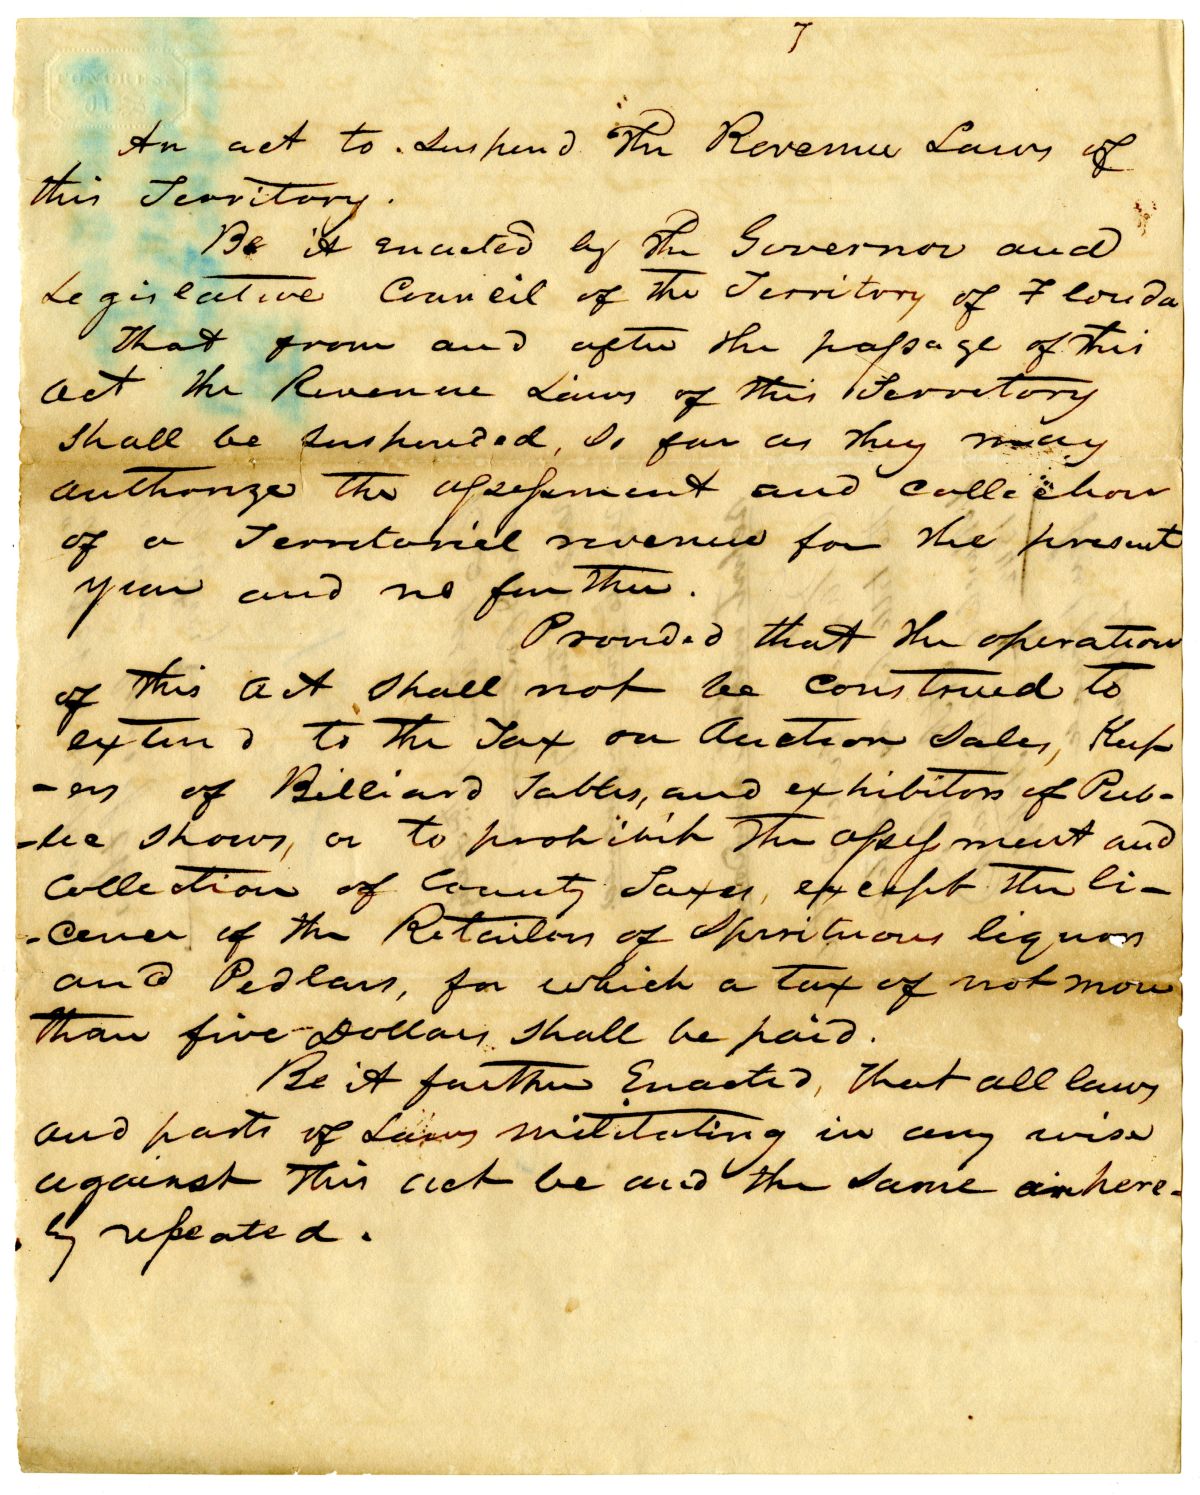 7
CONGRESS
An act to suspend the Revenue Laws of
this Territory.
Be it enacted by the Governor and
Legislative Council of the Territory of Florida
that from and after the passage of this
act the Revenue Laws of this Territory
shall be suspended, so far as they may
authorize the assessment and collection
of a Territorial revenue for the present
year and no further.
Provided that the operation
of this act shall not be construed to
extend to the Tax on Auction Sales, Keep-
-ers of Billiard Tables, and exhibitors of Pub-
-lic shows, or to prohibit the assessment and
collection of County Taxes, except the li-
-cence of the Retailors of Spirituous liquors
and Pedlars, for which a tax of not more
than five Dollars shall be paid.
Be it further Enacted, that all laws
and parts of Laws militating in any wise
against this act be and the same are here-
by repealed.